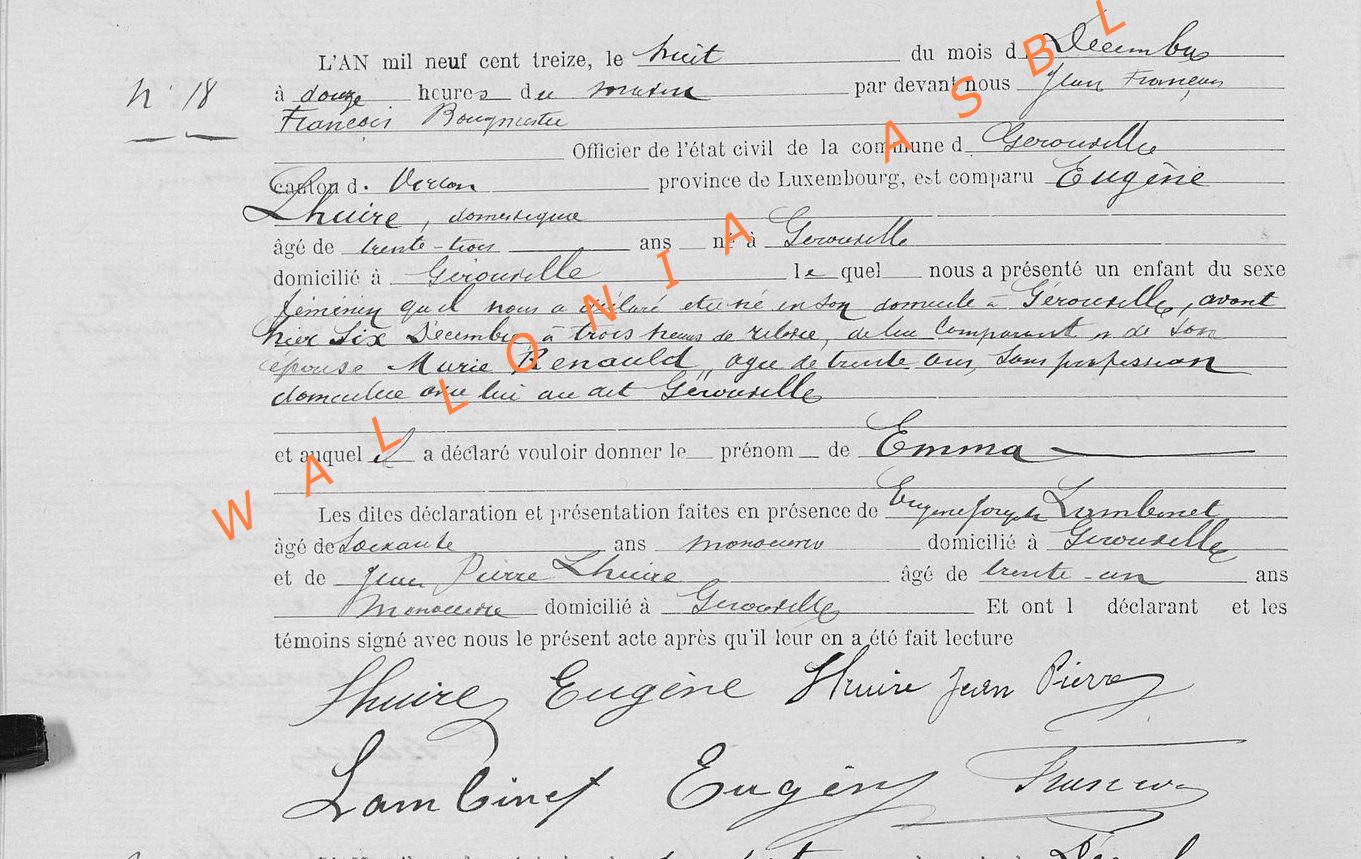 L'AN mil neuf cent treize, le huit du mois d Décembre
N° 18
à douze heures du matin par devant nous Jean François
François Bourgmestre
Officier de l'état civil de la commune d Gerouville
canton d. Virton province de Luxembourg, est comparu Eugène
Lhuire, domestique
âgé de trente-trois ans né à Gerouville
domicilié à Gérouville lequel nous a présenté un enfant du sexe
féminin qu'il nous a déclaré etre né en son domicile à Gérouville, avant
hier six Décembre à trois heures de relevée, de lui comparant et de son
épouse Marie Renauld, agée de trente ans, sans profession
domiciliée avec lui au dit Gérouville
et auquel il a déclaré vouloir donner le prénom de Emma
Les dites déclaration et présentation faites en présence de Eugène Joseph Lambinet
âgé de Soixante ans manoeuvre domicilié à Gerouville
et de Jean Pierre Lhuire âgé de trente-un ans
Manoeuvre domicilié à Gerouville Et ont l déclarant et les
témoins signé avec nous le présent acte après qu'il leur en a été fait lecture
Lhuire Eugène Lhuire Jean Pierre
Lambinet Eugène François
WALLONIA ASBL